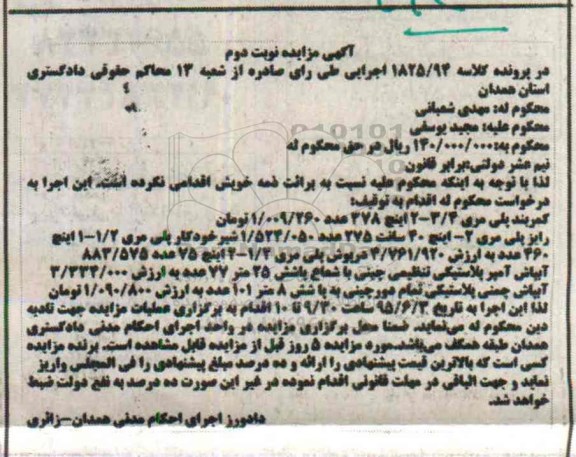 آگهی مزایده نوبت دوم
در پرونده کلاسه ۱۸۲۵/۹۴ اجرایی طی رای صادره از شعبه ۱۳ محاکم حقوقی دادگستری
استان همدان
محکوم له: مهدی شعبانی
محکوم علیه: مجید یوسفی
محکوم به: ۱۳۰/۰۰۰/۰۰۰ ریال در حق محکوم له
نیم عشر دولتی: برابر قانون
لذا با توجه به اینکه محکوم علیه نسبت به برائت ذمه خویش اقدامی نکرده است. این اجرا به
درخواست محکوم له اقدام به توقیف:
کمربند پلی مری ۳/۴-۲ اینچ ۳۷۸ عدد ۱/۰۰۹/۲۶۰ تومان
رایز پلی مری ۲- اینچ ۴۰ سانت ۲۷۵ عدد ۱/۵۲۴/۰۵۰ شیر خودکار پلی مری ۱/۲-۱ اینچ
۴۶۰ عدد به ارزش ۴/۷۶۱/۹۲۰ درپوش پلی مری ۱/۴-۲ اینچ ۷۵ عدد ۸۸۳/۵۷۵
آبپاش آمبر پلاستیکی تنظیمی چینی با شعاع پاشش ۲۵ متر ۷۷ عدد به ارزش ۳/۳۳۴/۰۰۰
آبپاش چمنی پلاستیکی تمام دورچینی به پا شش ۸ متر ۱۰۱ عدد به ارزش ۱/۰۹۰/۸۰۰ تومان
لذا این اجرا به تاریخ ۹۵/۶/۳ ساعت ۹/۳۰ تا ۱۰ اقدام به برگزاری عملیات مزایده جهت تادیه
دین محکوم له می‌نماید. ضمنا محل برگزاری مزایده در واحد اجرای احکام مدنی دادگستری
همدان طبقه همکف می‌باشد. مورد مزایده ۵ روز قبل از مزایده قابل مشاهده است. برنده مزایده
کسی است که بالاترین قیمت پیشنهادی را ارائه و ده درصد مبلغ پیشنهادی را فی المجلس واریز
نماید و جهت الباقی در مهلت قانونی اقدام نموده در غیر این صورت ده درصد به نفع دولت ضبط
خواهد شد.
دادورز اجرای احکام مدنی همدان-زائری